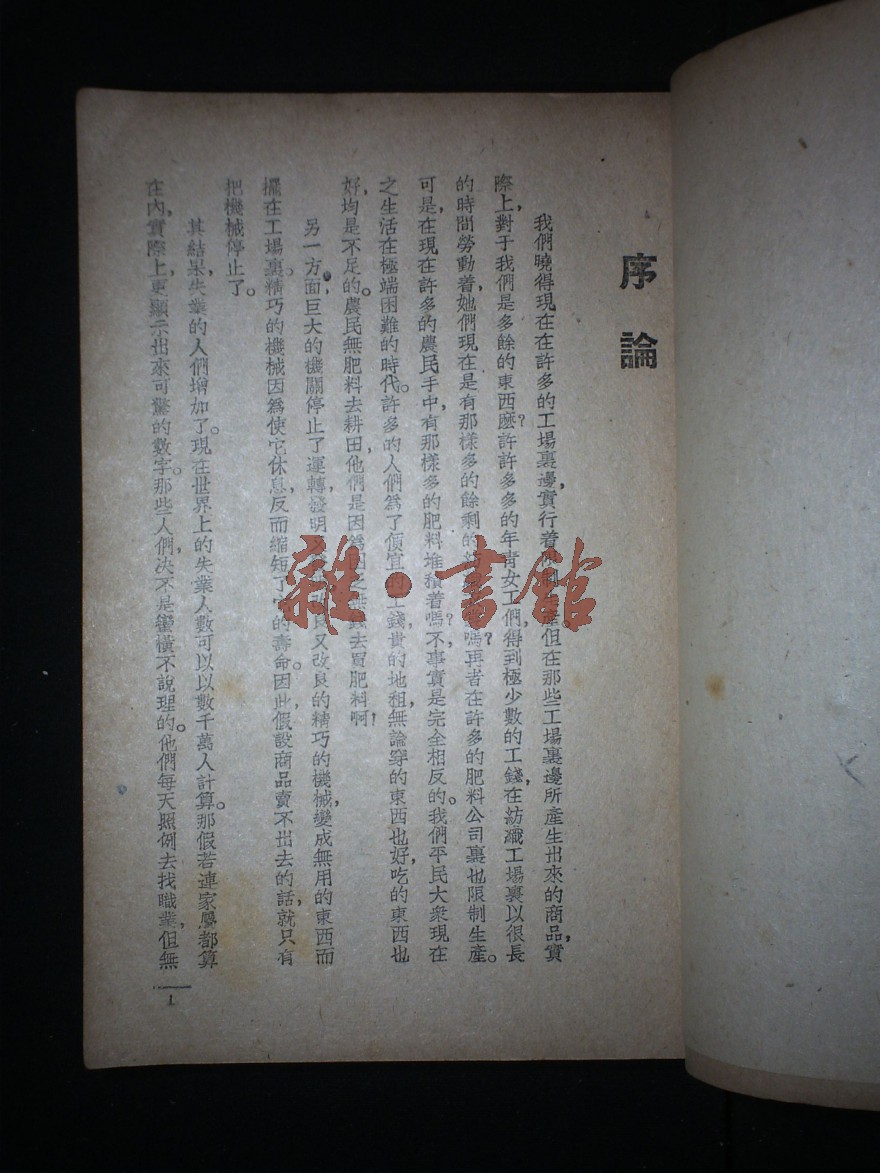 序論
我們曉得現在在許多的工場裏邊，實行着 產。但在那些工場裏邊所產生出來的商品，實
際上，對于我們是多餘的東西麼？許許多多的年靑女工們，得到極少數的工錢，在紡織工場裏以很長
的時間勞動着，她們現在是有那樣多的餘剩的 嗎？再者在許多的肥料公司裏也限制生產。
可是，在現在許多的農民手中，有那樣多的肥料堆積着嗎？不，事實是完全相反的。我們平民大衆現在
之生活在極端困難的時代。許多的人們爲了便宜的工錢，貴的地租，無論穿的東西也好，吃的東西也
好，均是不足的。農民無肥料去耕田，他們是因爲 去買肥料啊！
另一方面，巨大的機關停止了運轉，發明又 改良又改良的精巧的機械，變成無用的東西而
擺在工場裏。精巧的機械因爲使它休息，反而縮短了 的壽命。因此，假設商品賣不出去的話，就只有
把機械停止了。
其結果，失業的人們增加了。現在世界上的失業人數可以以數千萬人計算。那假若連家屬都算
在內，實際上，更顯示出來可驚的數字。那些人們，决不是蠻橫不說理的。他們每天照例去找職業，但無
1
雜·書館